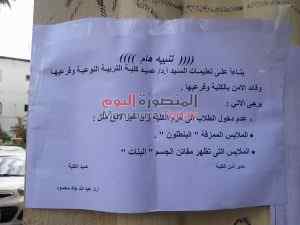 (((( تنبيه هام ))))
بناءاً على تعليمات السيد أ.د/ عميد كلية التربية النوعية وفرعيها
وقائد الأمن بالكلية وفرعيها .
يرجى الآتي :
المنصورة اليوم
• عدم دخول الطلاب الى حرم الكلية بزي غير لائق مثل :
• الملابس الممزقة " البنطلون " .
• الملابس التي تظهر مفاتن الجسم " البنات " .
مدير أمن الكلية
عميد الكلية
أ.د/ عبد الله جاد محمود